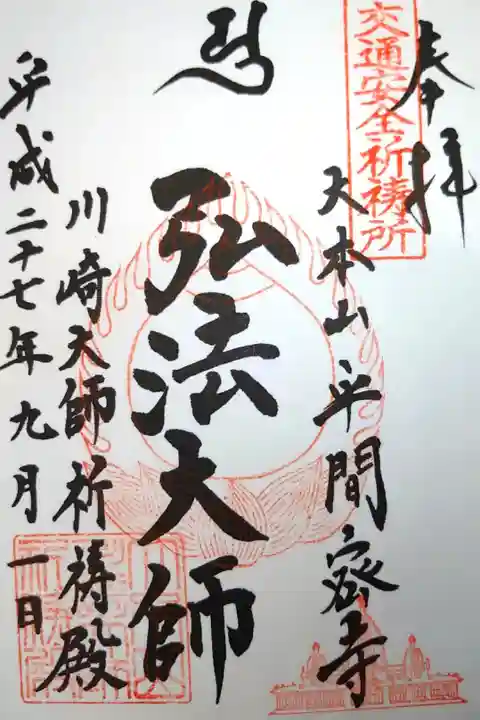 奉拝
交通安全祈祷所
大本山平間密寺
弘法大師
川崎大師祈祷殿
平成二十七年九月一日